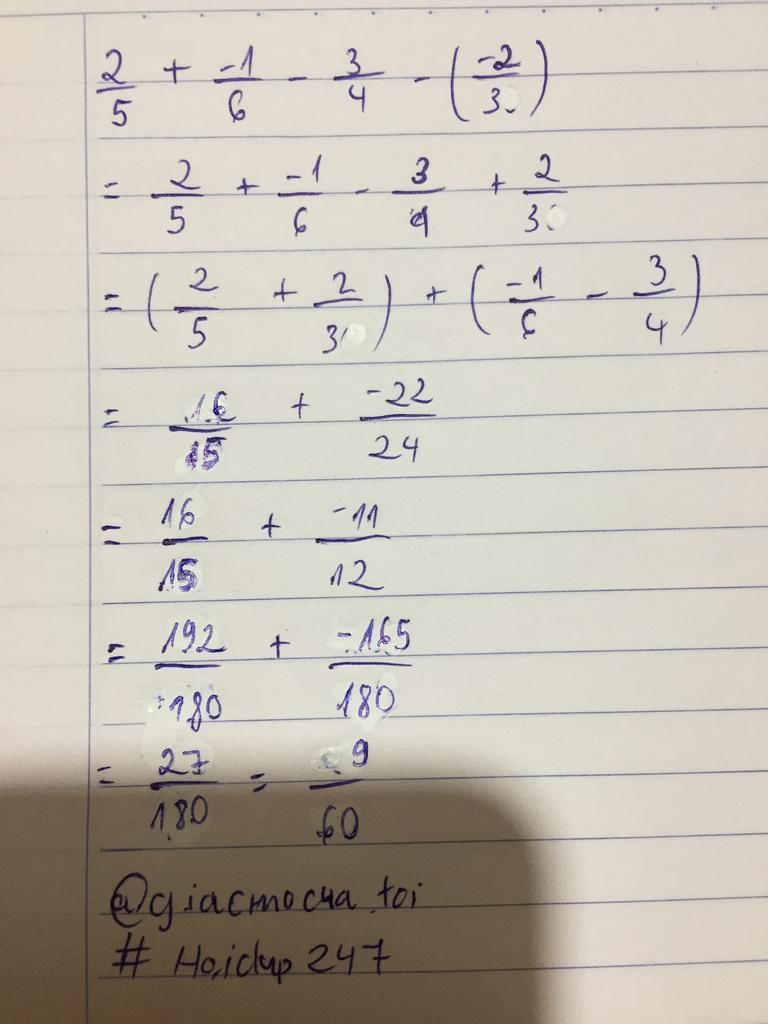 2/5 + -1/6 - 3/4 - (-2/3)
= 2/5 + -1/6 - 3/4 + 2/3
= (2/5 + 2/3) + (-1/6 - 3/4)
= 16/15 + -22/24
= 16/15 + -11/12
= 192/180 + -165/180
= 27/180 = 9/60
@giacmocua.toi
# Hoidap 247